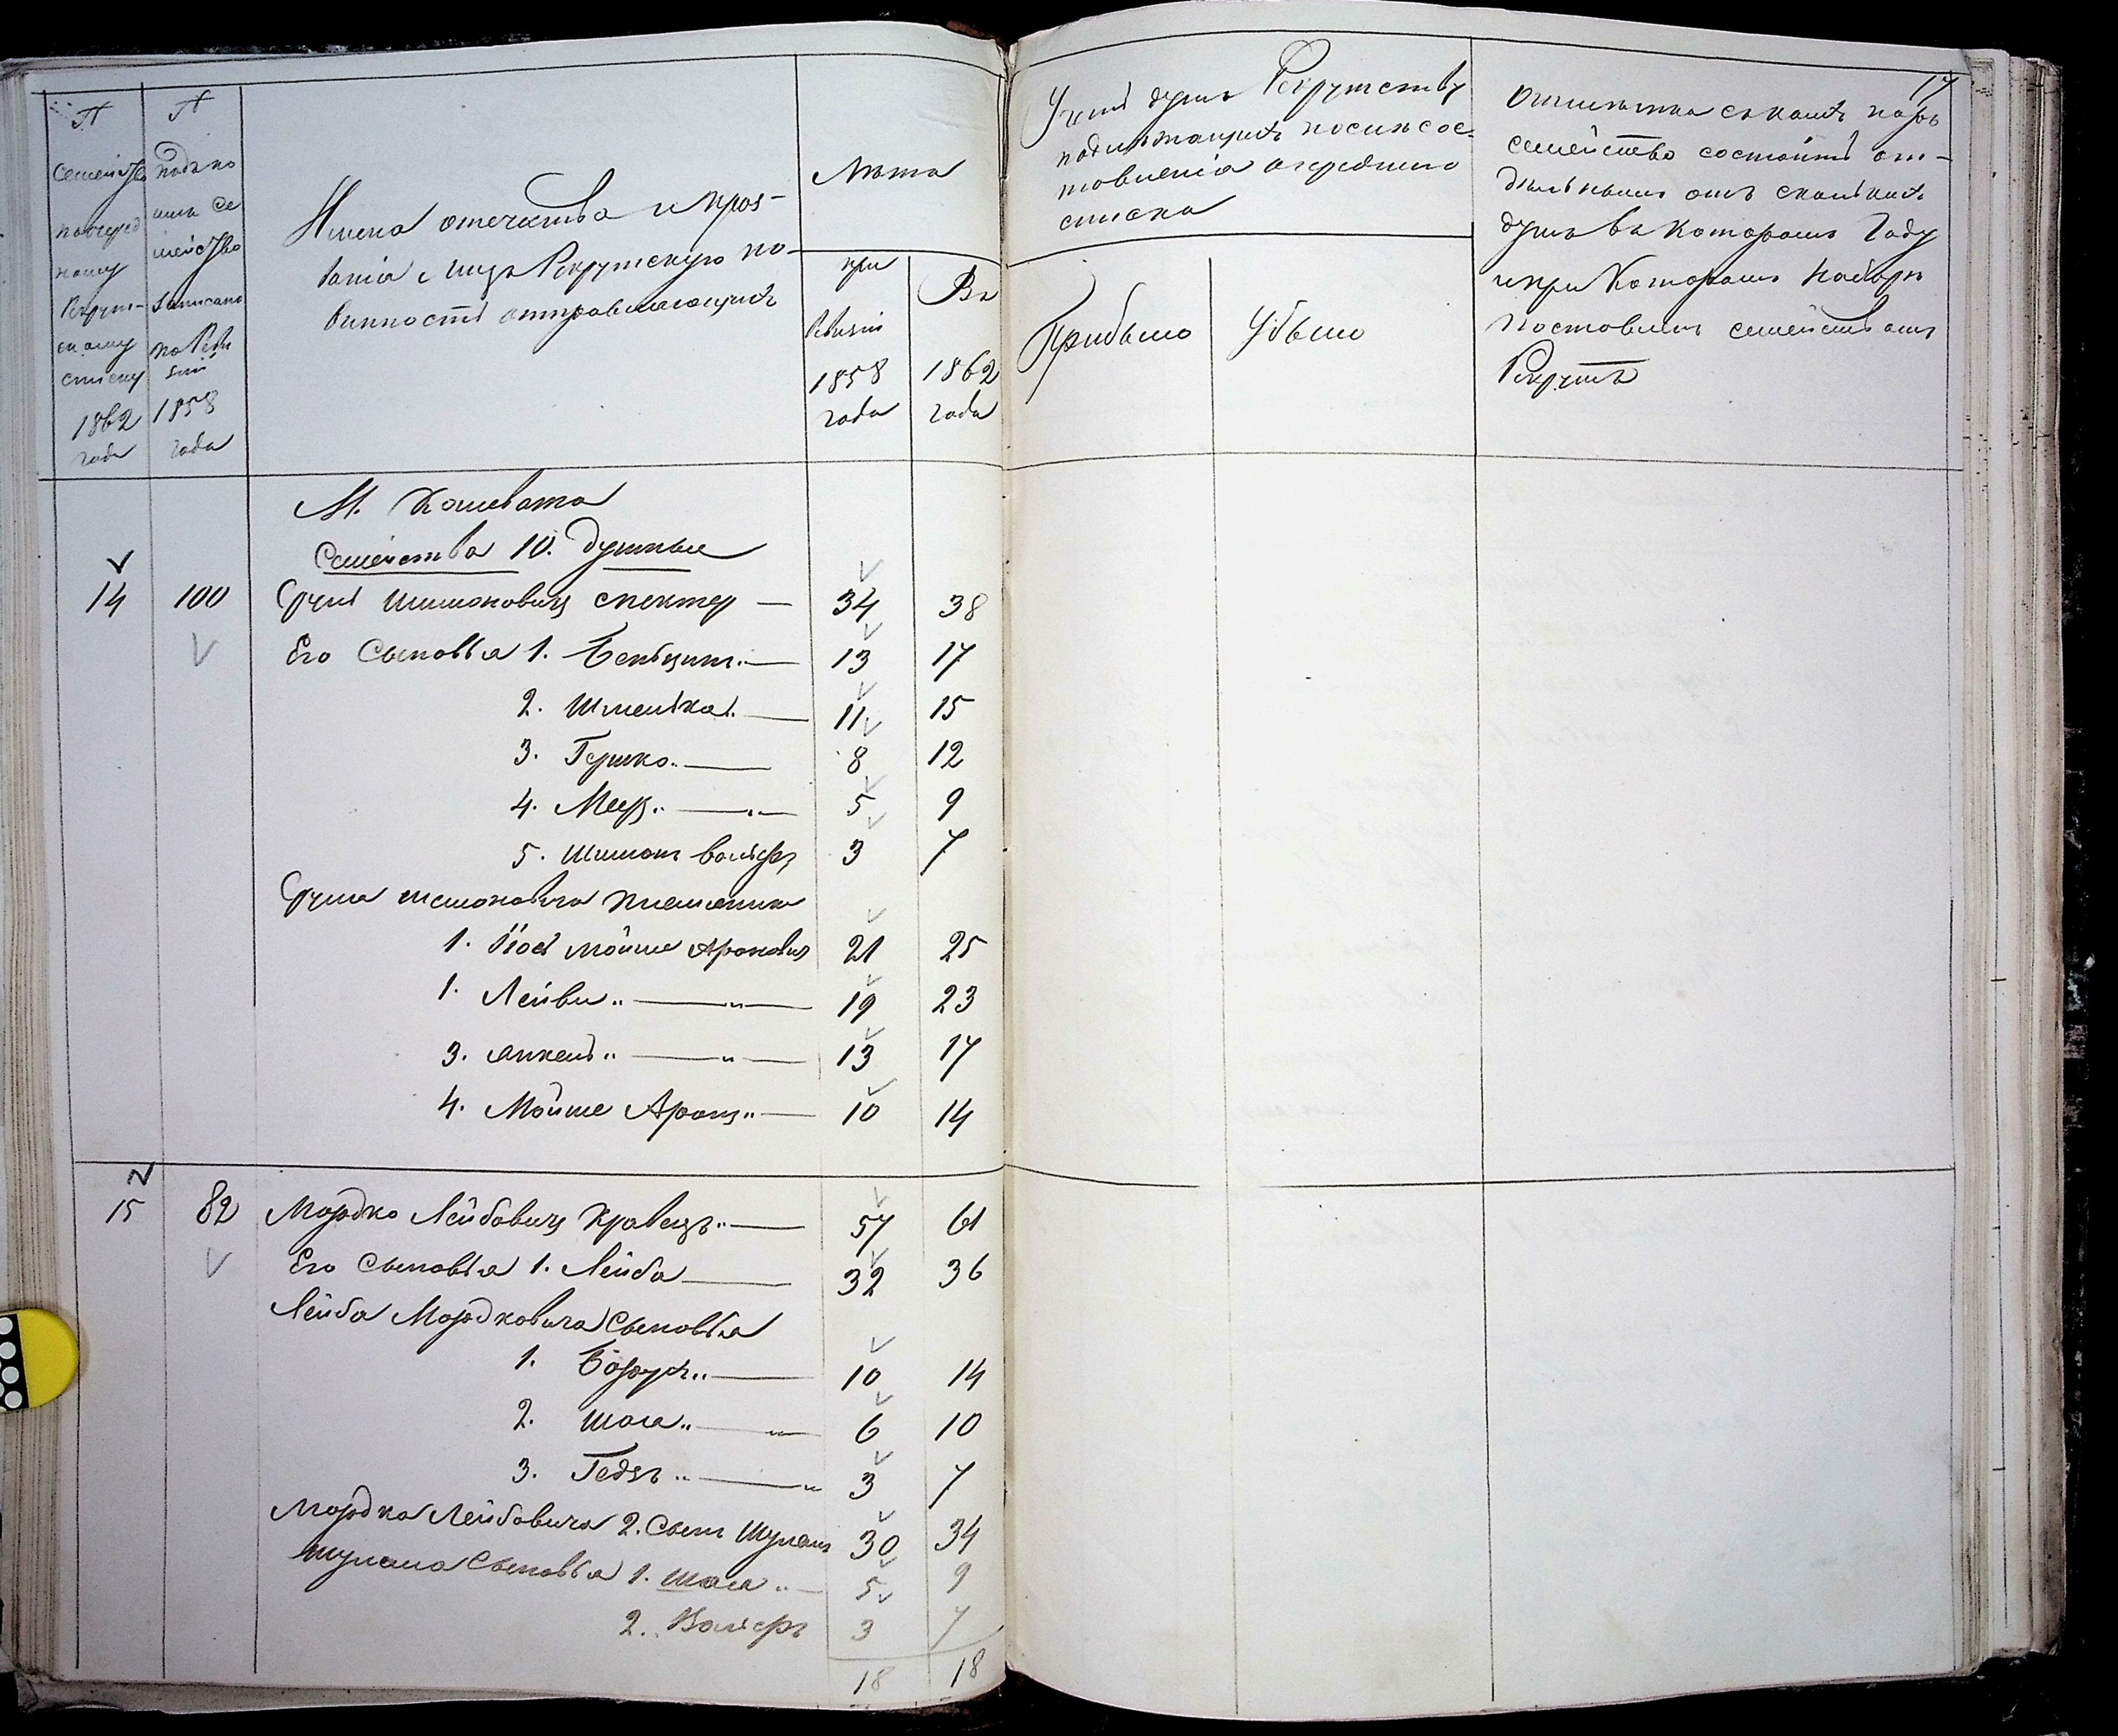 17
№
семейства
по очеред
ному
Рекрут-
скому
списку
1862
года
№
подъ ко
имъ се
мейство
записано
по Реви
зии
1858
года
Имена отечества и проз-
вания лицъ Рекрутскую по-
винность отправляющихъ
Лѣта
при
Ревизии
1858
года
Въ
1862
года
душъ Рекрутству
подлежащихъ после сос-
товления очереднаго
списка
Прибыло
Убыло
Отметка съ какихъ поръ
семейство состоитъ от-
дѣльнымъ отъ сколькихъ
душъ въ которомъ году
и при которомъ наборѣ
поставилъ семействомъ
Рекрутъ
М. Кошевата
Семейства 10. душные
14 100 Сруль Шимоновичъ Спекторъ — 34 38
Его Сыновья 1. Бенционъ — 13 17
2. Шмелька — 11 15
3. Гершко — 8 12
4. Меер „ — „ — 5 9
5. Шимонъ Вольфъ 3 7
Сруля Шимоновича племянники
1. Иось Мойше Ароновъ 21 25
1. Лейви „ — „ — 19 23
3. Янкель „ — „ — 13 17
4. Мойше Аронъ „ — 10 14
15 82 Мордко Лейбовичъ Кравецъ „ — 57 61
Его Сыновья 1. Лейба — 32 36
Лейба Мордковича Сыновья
1. Борухъ „ — 10 14
2. Шая „ — „ 6 10
3. Гедзъ „ — „ 3 7
Мордка Лейбовича 2. Сынъ Шулимъ 30 34
Шулима Сыновья 1. Шая „ — 5 9
2. Вольфъ 3 7
18 18